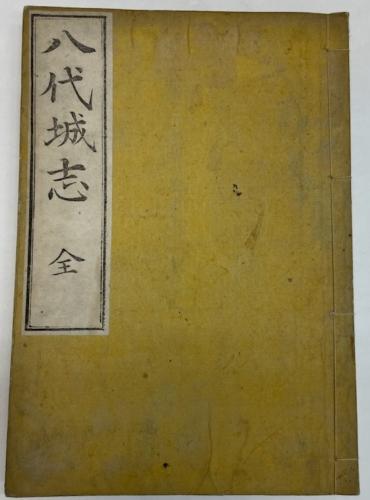 八代城志 全